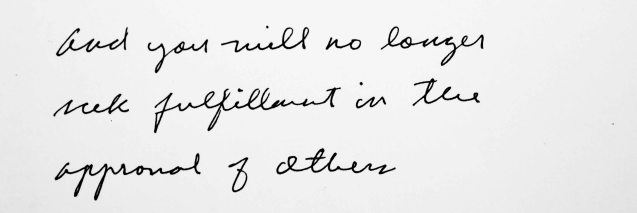 and you will no longer
seek fulfillment in the
approval of others